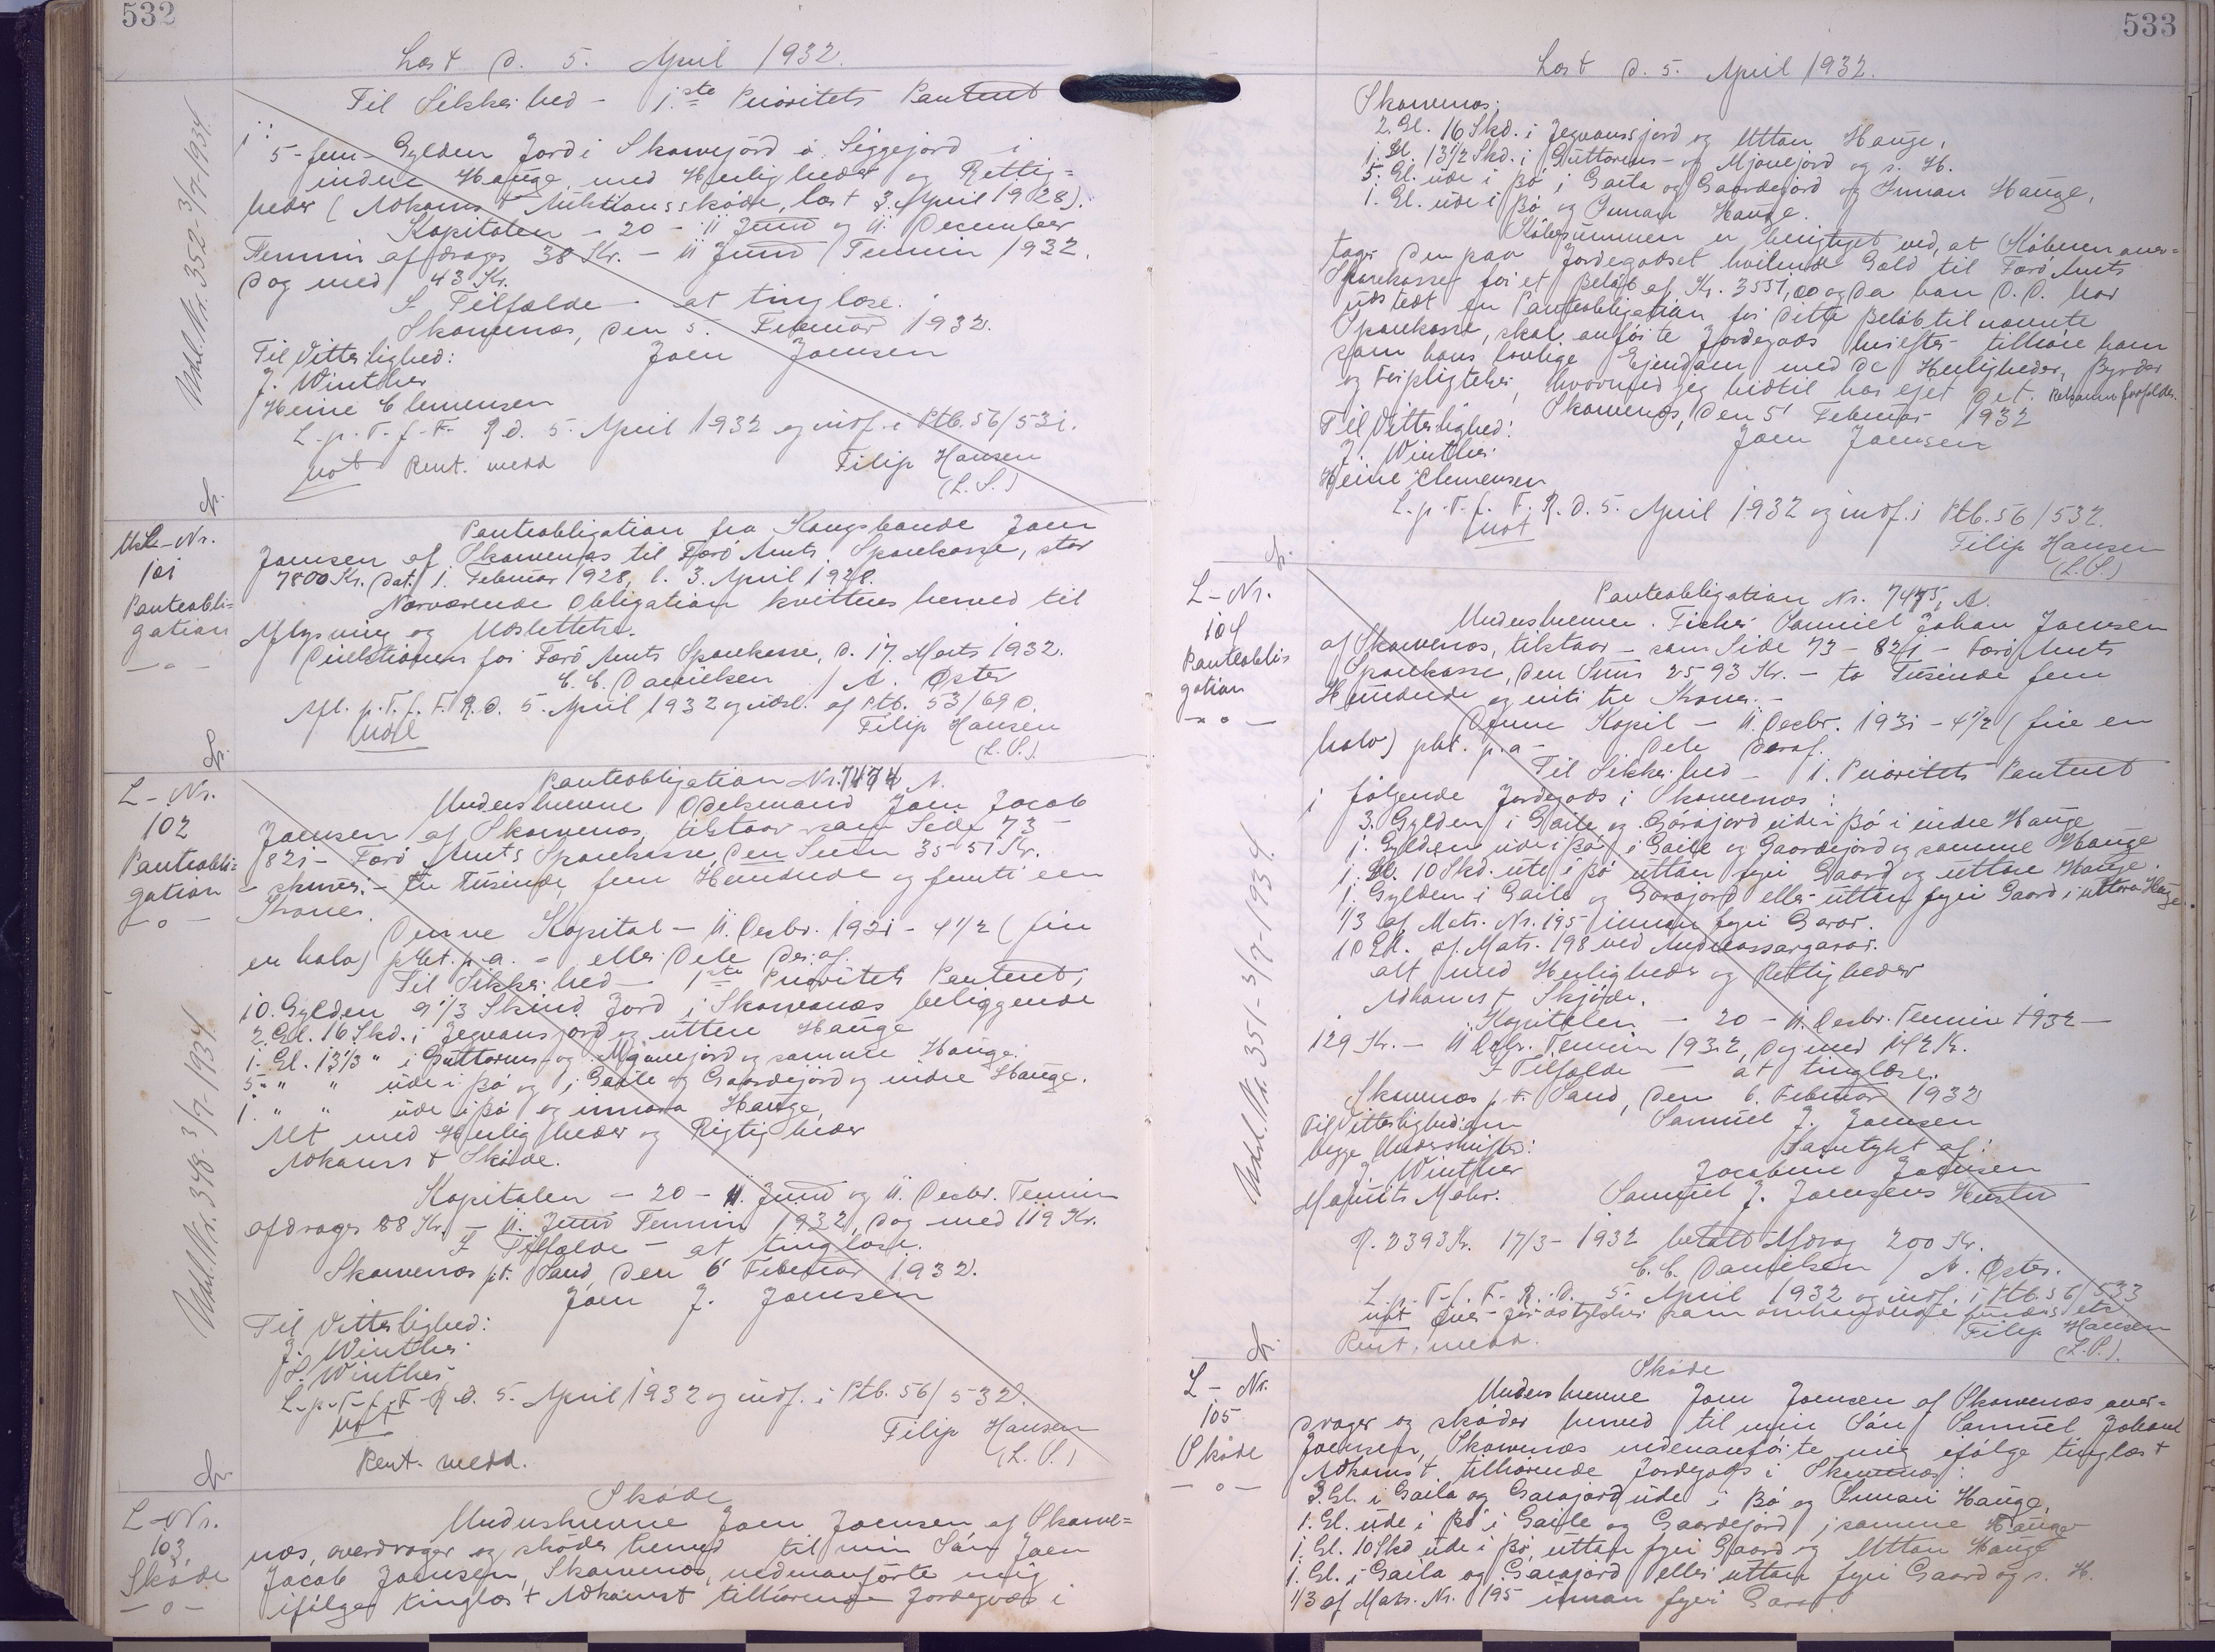 532
Læst d. 5. April 1932.
Til Sikkerhed - 1ste Prioritets Panteret
i:
5 - fem - Gylden Jord i Skarvejørd o. Siggejord i
indre Hauge, med Herligheder og Rettig=
heder (Adkomst Auktionsskøde, læst 3. April 1928).
Kapitalen - 20 - 11 Juni og 11. December
Termin afdrages 38 Kr. - 11 Juni Termin 1932.
dog med 43 Kr.
I Tilfælde - at tinglæse.
Skarvenæs, den 5. Februar 1932.
Til Vitterlighed: Joen Joensen
J. Winther
Heine Clemensen
L. p. T. f. F. R. d. 5. April 1932 og indf. i Ptb. 56/531.
not Rent. medd Filip Hansen
(L. S.)
Udsl. Nr. 352 - 3/7-1934.
Udsl-Nr.
101
Panteobli=
gation
- o -
Panteobligation fra Kongsbonde Joen
Joensen af Skarvenæs til Færø Amts Sparekasse, stor
7800 Kr. dat. 1. Februar 1928, l. 3. April 1928.
Nærværende Obligation kvitteres herved til
Aflysning og Udslettelse.
Direktionen for Færø Amts Sparekasse, d. 17. Marts 1932.
C. C. Danielsen / A. Øster
Afl. p. T. f. F. R. d. 5. April 1932 og udsl. af Ptb. 53/690.
Filip Hansen
(L. S.)
L-Nr.
102
Panteobli=
gation
- o -
Panteobligation Nr. 7474 A.
Underskrevne Odelsmand Joen Jacob
Joensen af Skarvenæs, tilstaar - som Side 73 -
821 - Færø Amts Sparekasse, den Sum 3551 Kr.
- skriver: - tre Tusinde, fem Hundrede og femti een
Kroner.
Denne Kapital - 11. Decbr. 1931 - 4 1/2 (fire
en halv) pCt. p. a. - eller Dele deraf.
Til Sikkerhed - 1ste Prioritets Panteret i
10. Gylden 9 1/3 Skind Jord i Skarvenæs beliggende
2 Gl. 16 Skd. i Jegvansjord og uttan Hauge
1. Gl. 13 1/3 " i Guttorms- og Mjóvejord og samme Hauge.
5. " " ude i Bø og i Gaile og Gaardejord og indre Hauge.
1. " " ude i Bø og innara Hauge,
Alt med Herligheder og Rigtigheder
Adkomst Skøde.
Kapitalen - 20 - 11. Juni og 11. Decbr. Termin
afdrages 88 Kr. - 11. Juni Termin 1932, dog med 119 Kr.
I Tilfælde - at tinglæse.
Skarvenæs pt. Sand, den 6 Februar 1932.
Joen J. Joensen
Til Vitterlighed:
J. Winther
S. Winther
L. p. T. f. F. R. d. 5. April 1932 og indf. i Ptb. 56/532.
not Filip Hansen
Rent. medd. (L. S.)
Udsl. Nr. 348. 3/7-1934.
L-Nr.
103.
Skøde
- o -
Skøde
Underskrevne Joen Joensen af Skarve=
næs, overdrager og skøder herved til min Søn Joen
Jacob Joensen, Skarvenæs, nedenanførte mig
ifølge tinglæst Adkomst tilhørende Jordegods i
533
Læst d. 5. April 1932.
Skarvenæs:
2. Gl. 16 Skd. i Jegvansjord og Uttan Hauge,
1. Gl. 13 1/2 Skd. i Guttorms- og Mjóvejord og s. H.
5. Gl. ude i Bø i Gaila og Gaardejord og Innan Hauge,
1. Gl. ude i Bø og Innan Hauge.
Købesummen er berigtiget ved, at Køberen over=
tager den paa Jordegodset hvilende Gæld til Færø Amts
Sparekasse for et Beløb af Kr. 3551,00 og da han D. D. har
udstedt en Panteobligation for dette Beløb til nævnte
Sparekasse, skal anførte Jordegods herefter tilhøre ham
som hans lovlige Ejendom med de Herligheder, Byrder
og Forpligtelser, hvormed jeg hidtil har ejet det.
Skarvenæs, den 5' Februar 1932
Til Vitterlighed: Joen Joensen
J. Winther.
Heine Clemensen
L. p. T. f. F. R. d. 5. April 1932 og indf. i Ptb. 56/532.
not
Filip Hansen
(L. S.)
L-Nr.
104
Panteobli=
gation
- o -
Panteobligation Nr. 7475, A.
Underskrevne Fisker Samuel Johan Joensen
af Skarvenæs, tilstaar - som Side 73 - 821 - Færø Amts
Sparekasse, den Sum 2593 Kr. - to Tusinde fem
Hundrede og niti tre Kroner. -
Denne Kapil - 11. Decbr. 1931 - 4 1/2 (fire en
halv) pCt. p. a - Dele deraf.
Til Sikkerhed - 1. Prioritets Panteret
i følgende Jordegods i Skarvenæs:
3. Gylden i Gaile og Górajord ude i Bø i indre Hauge
1. Gylden ude i Bø i Gaile og Gaardejord og samme Hauge
1. Gl. 10 Skd. ute i Bø uttan fyri Gaard og uttan Hauge.
1. Gylden i Gaile og Garajord eller uttan fyri Gaard i uttara Hauge.
1/3 af Matr. Nr. 195 innan fyri Garar.
10 Skd. af. Matr. 198 ved Andreassargarar.
alt med Herligheder og Rettigheder
Adkomst Skjøde.
Kapitalen - 20 - 11. Decbr. Termin 1932 -
129 Kr. - 11 Decbr. Termin 1932, dog med 142 Kr.
I Tilfælde - at tinglæse.
Skarvenæs p. t. Sand, den 6. Februar 1932
Til Vitterlighed om Samuel J. Joensen
begge Underskrifter: Samtykt af:
J. Winther Jacobine Joensen
Maurits Mohr. Samuel J. Joensens Hustru
R. 2393 Kr. 17/3 - 1932 betalt Afdrag 200 Kr.
C. C. Danielsen / A. Øster.
L. p. T. f. F. R. D. 5. April 1932 og indf. i Ptb. 56/533
Filip Hansen
Rent. medd. (L. S.)
Udsl. Nr. 351 - 3/7-1934.
L-Nr.
105
Skøde
- o -
Skøde
Underskrevne Joen Joensen af Skarvenæs over=
drager og skøder herved til min Søn Samuel Johan
Joensen, Skarvenæs nedenanførte mig ifølge tinglæst
Adkomst tilhørende Jordegods i Skarvenæs:
3. Gl. i Gaila og Garajord ude i Bø og Innari Hauge,
1. Gl. ude i Bø i Gaile og Gaardejord i samme Hauge
1. Gl. 10 Skd ude i Bø, uttan fyri Gaard og Uttan Hauge
1. Gl. i Gaila og Garajord eller uttan fyri Gaard og s. H.
1/3 af Matr. Nr. 195 innan fyri Garar.